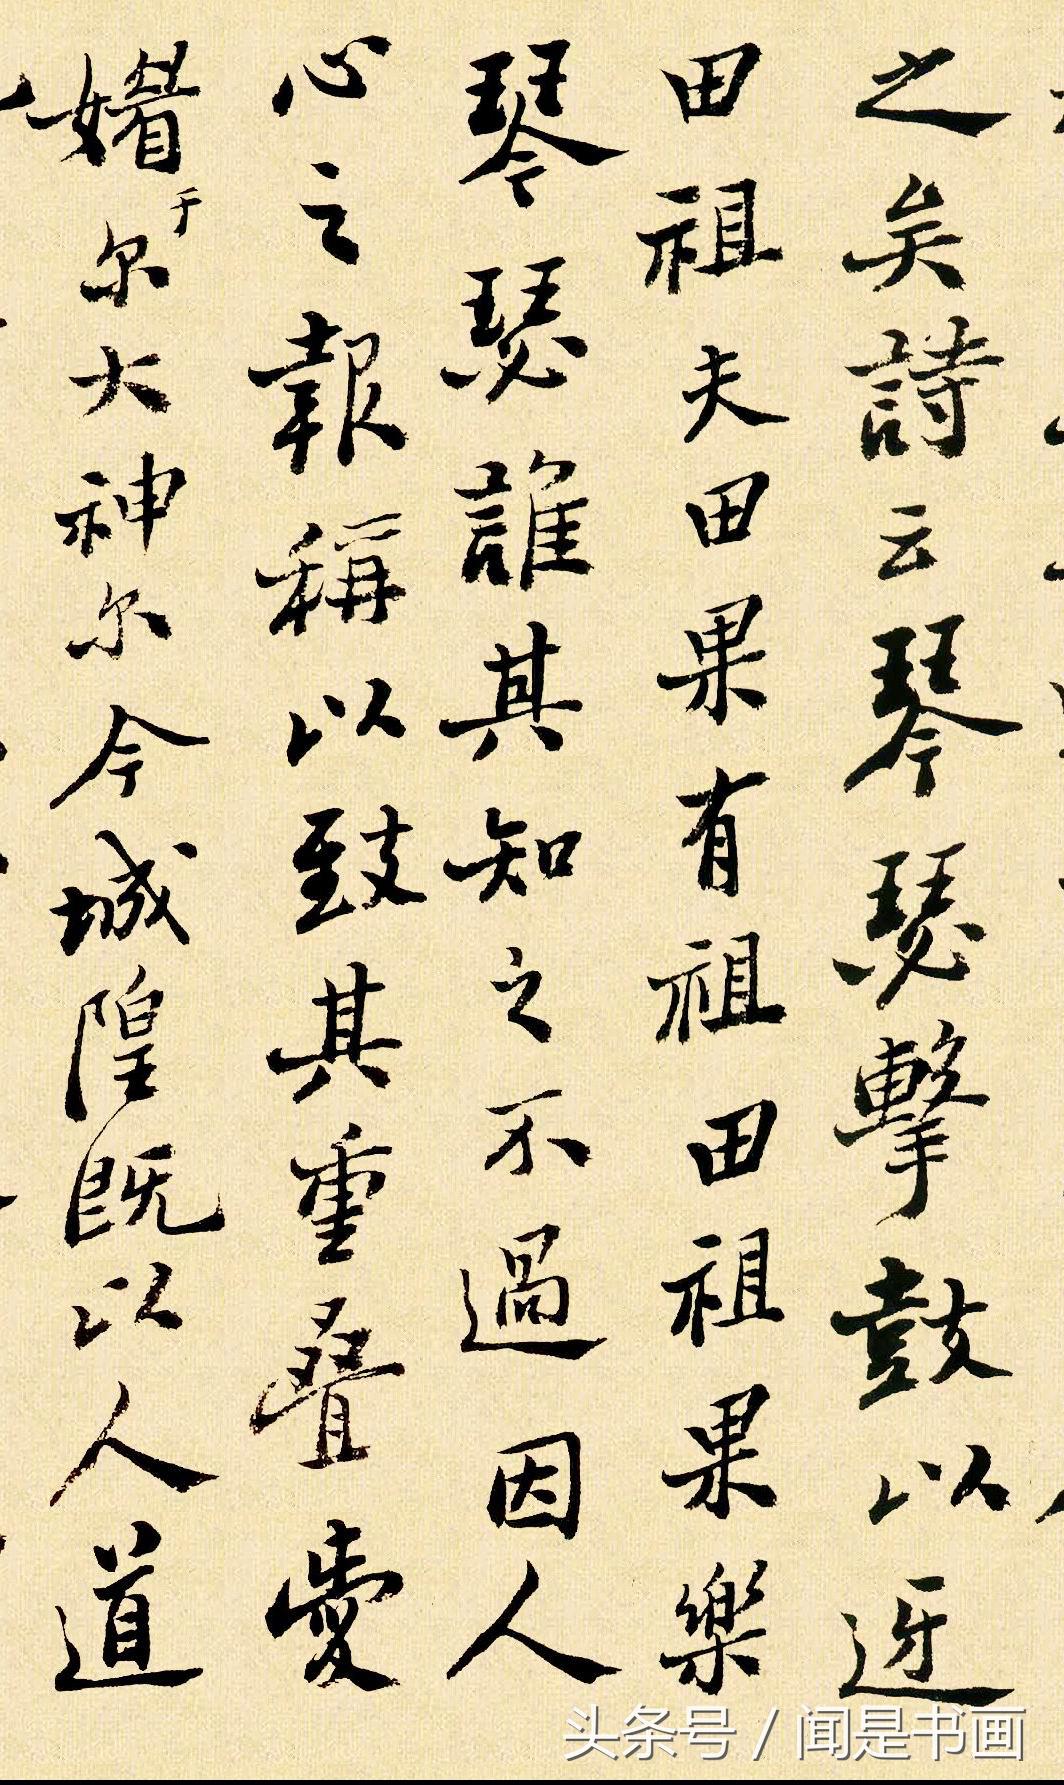 之矣詩云琴瑟擊鼓以迓
田祖夫田果有祖田祖果樂
琴瑟誰其知之不過因人
心之報稱以致其重叠愛
媚于尔大神尔今城隍既以人道
头条号 / 闻是书画